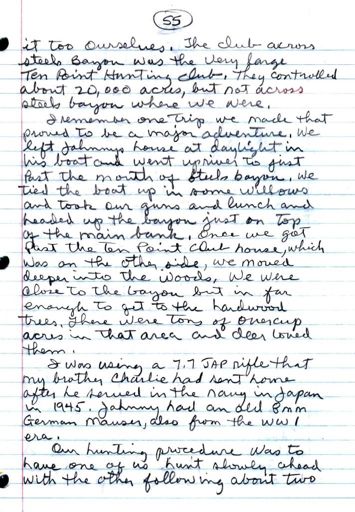 55
it too ourselves. The club across
steels Bayou was the very large
Ten Point Hunting Club. They controlled
about 20,000 acres, but not across
steels bayou where we were.
I remember one trip we made that
proved to be a major adventure. We
left Johnnys house at daylight in
his boat and went upriver to just
Past the mouth of steels bayou. We
tied the boat up in some willows
and took our guns and lunch and
headed up the bayou just on top
of the main bank. Once we got
Past the Ten Point Club house, which
was on the other side, we moved
deeper into the woods. We were
close to the bayou but in far
enough to get to the hardwood
trees. There were tons of overcup
acres in that area and deer loved
them.
I was using a 7.7 JAP rifle that
my brother Charlie had sent home
after he served in the navy in Japan
in 1945. Johnny had an old 8mm
German mauser, also from the WW I
era.
Our hunting procedure was to
have one of us hunt slowly ahead
with the other following about two